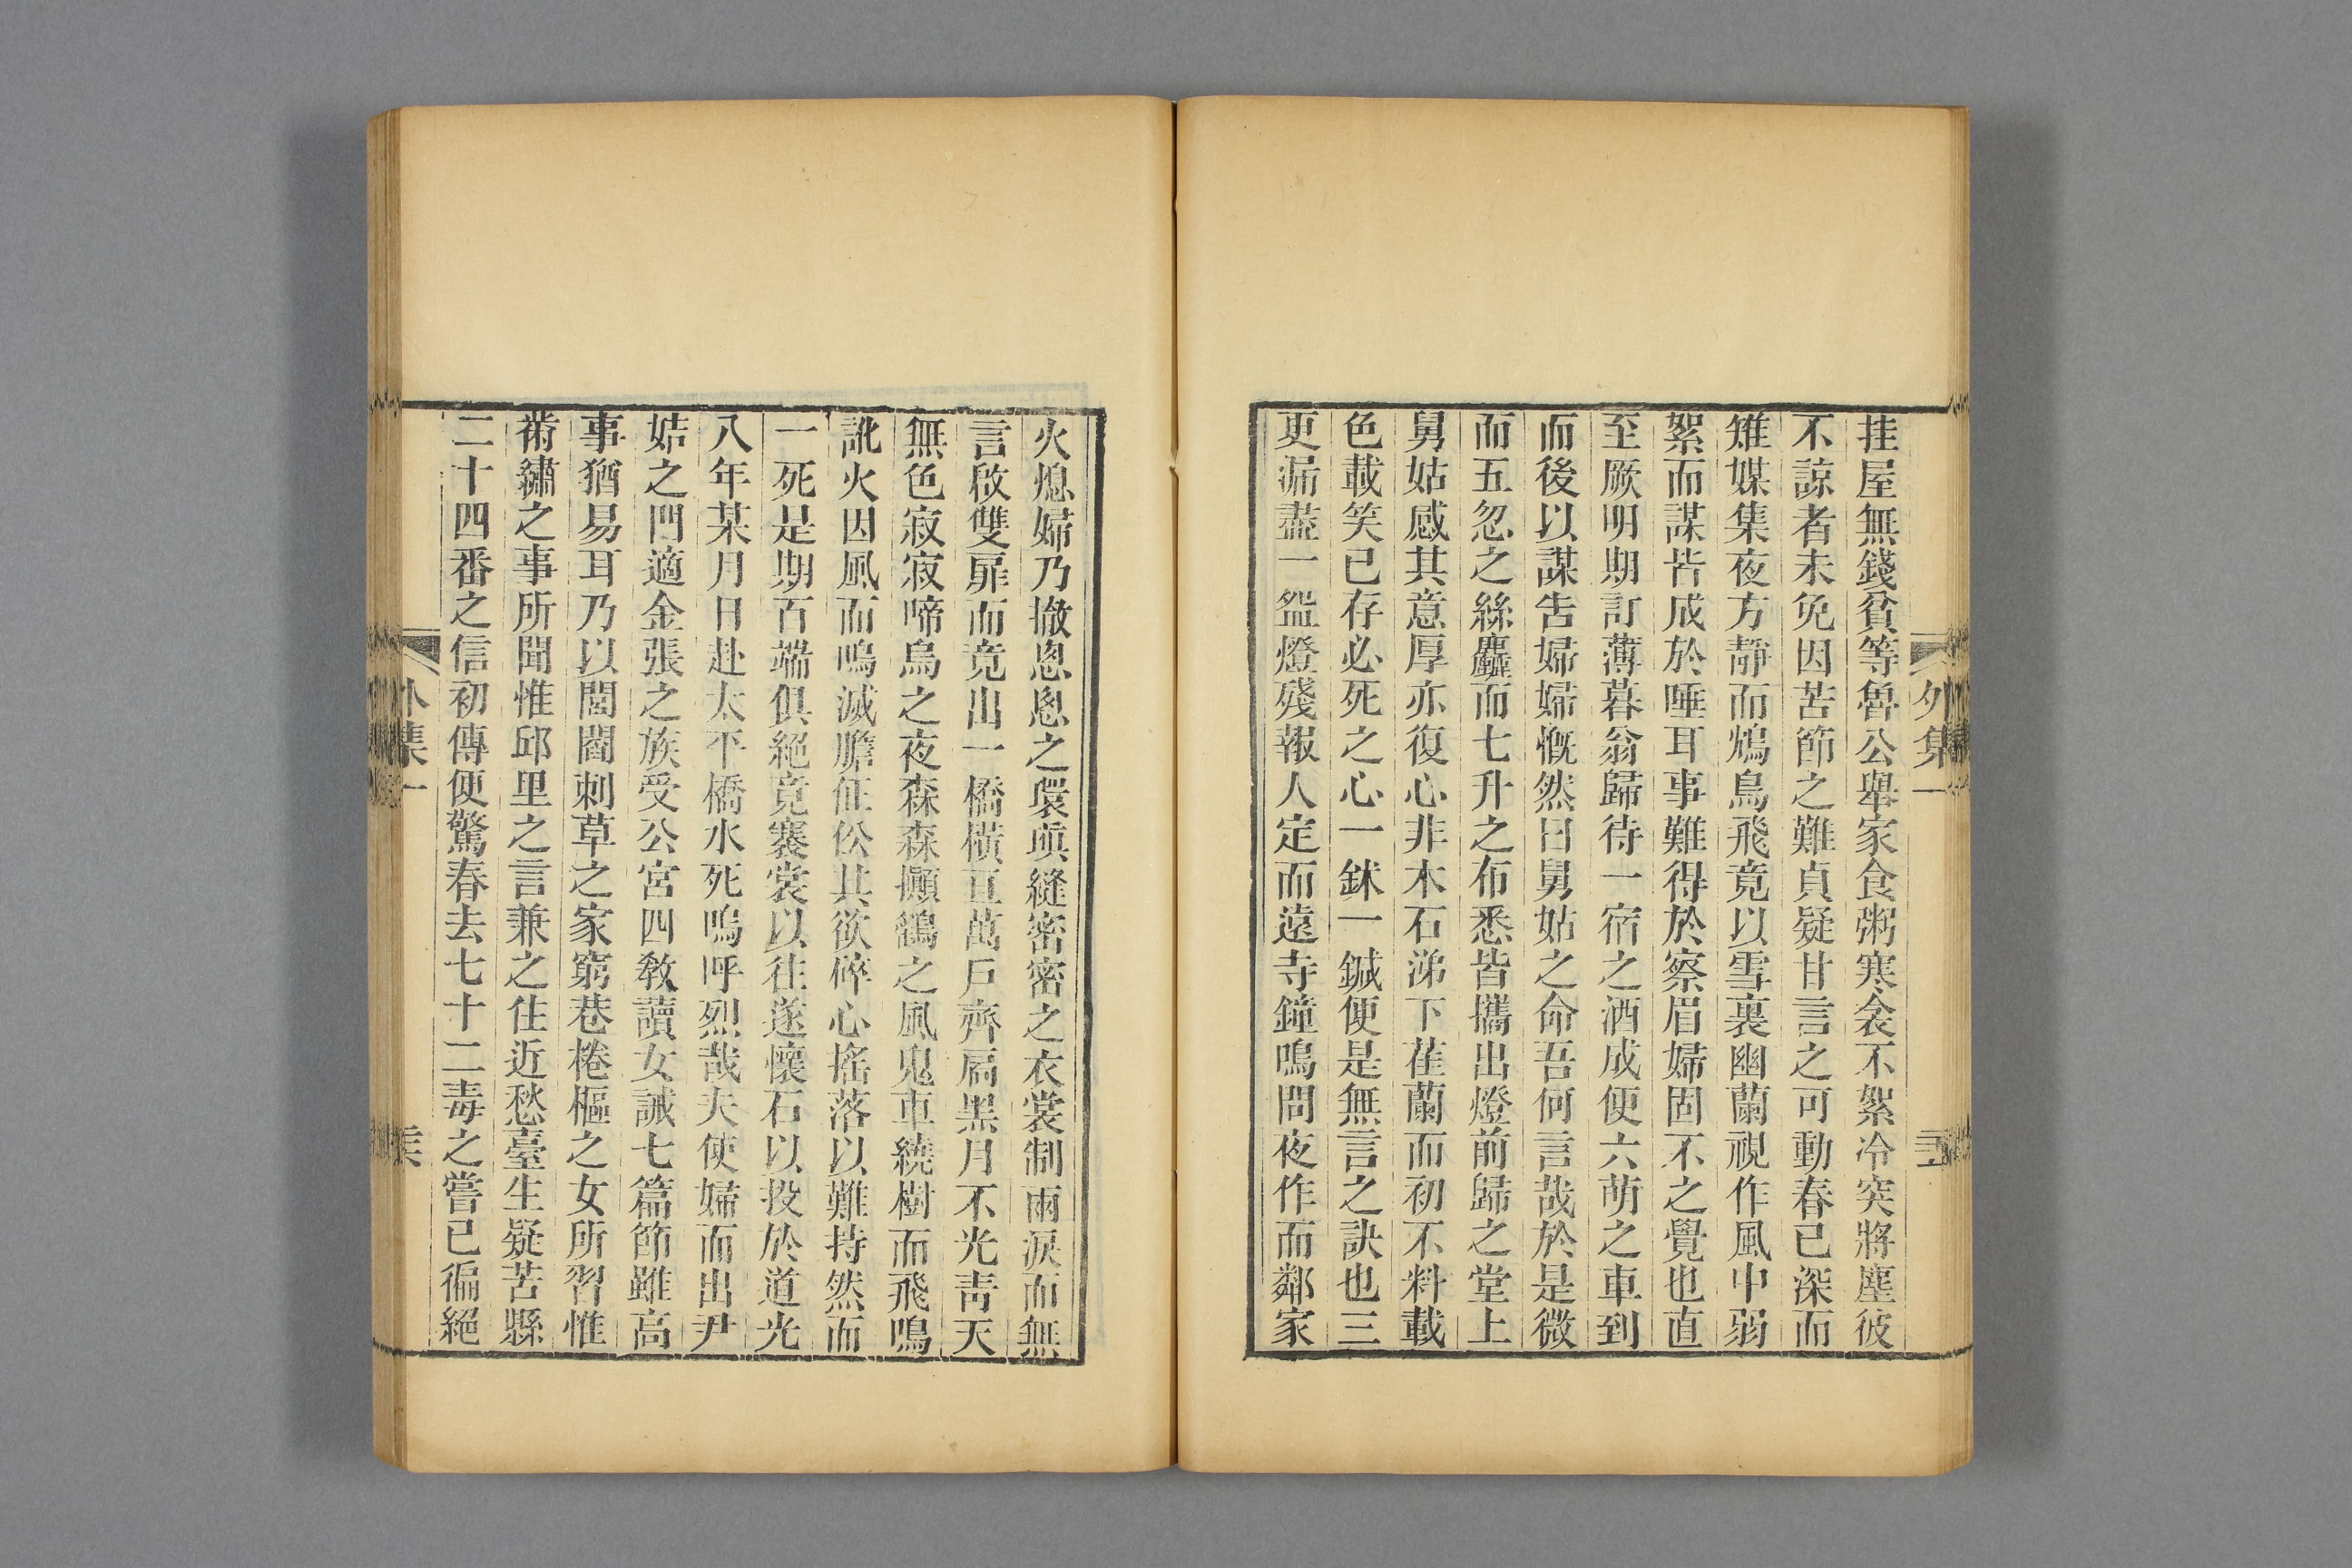 挂屋無錢貧等魯公舉家食粥寒衾不絮冷突將塵彼
不諒者未免因苦節之難貞疑甘言之可動春已深而
雉媒集夜方靜而鴆鳥飛竟以雪裏幽蘭視作風中弱
絮而謀皆成於唾耳事難得於察眉婦固不之覺也直
至厥明期訂薄暮翁歸待一宿之酒成便六萌之車到
而後以謀吿婦婦慨然曰舅姑之命吾何言哉於是微
而五忽之絲麤而七升之布悉皆攜出燈前歸之堂上
舅姑感其意厚亦復心非木石涕下萑蘭而初不料載
色載笑已存必死之心一鉥一鍼便是無言之訣也三
更漏盡一盌燈殘報人定而遠寺鐘鳴問夜作而鄰家
火熄婦乃撤悤悤之環瑱縫密密之衣裳制兩淚而無
言啟雙扉而竟出一橋橫亙萬戶齊扃黑月不光靑天
無色寂寂啼烏之夜森森攧鶴之風鬼車繞樹而飛鳴
訛火因風而鳴滅膽怔忪其欲碎心搖落以難持然而
一死是期百端俱絕竟褰裳以往遂懷石以投於道光
八年某月日赴太平橋水死嗚呼烈哉夫使婦而出尹
姞之門適金張之族受公宮四敎讀女誡七篇節雖高
事猶易耳乃以閭閻刺草之家窮巷棬樞之女所習惟
黹繡之事所聞惟邱里之言兼之住近愁臺生疑苦縣
二十四番之信初傳便驚春去七十二毒之嘗已徧絕
外集一
外集一